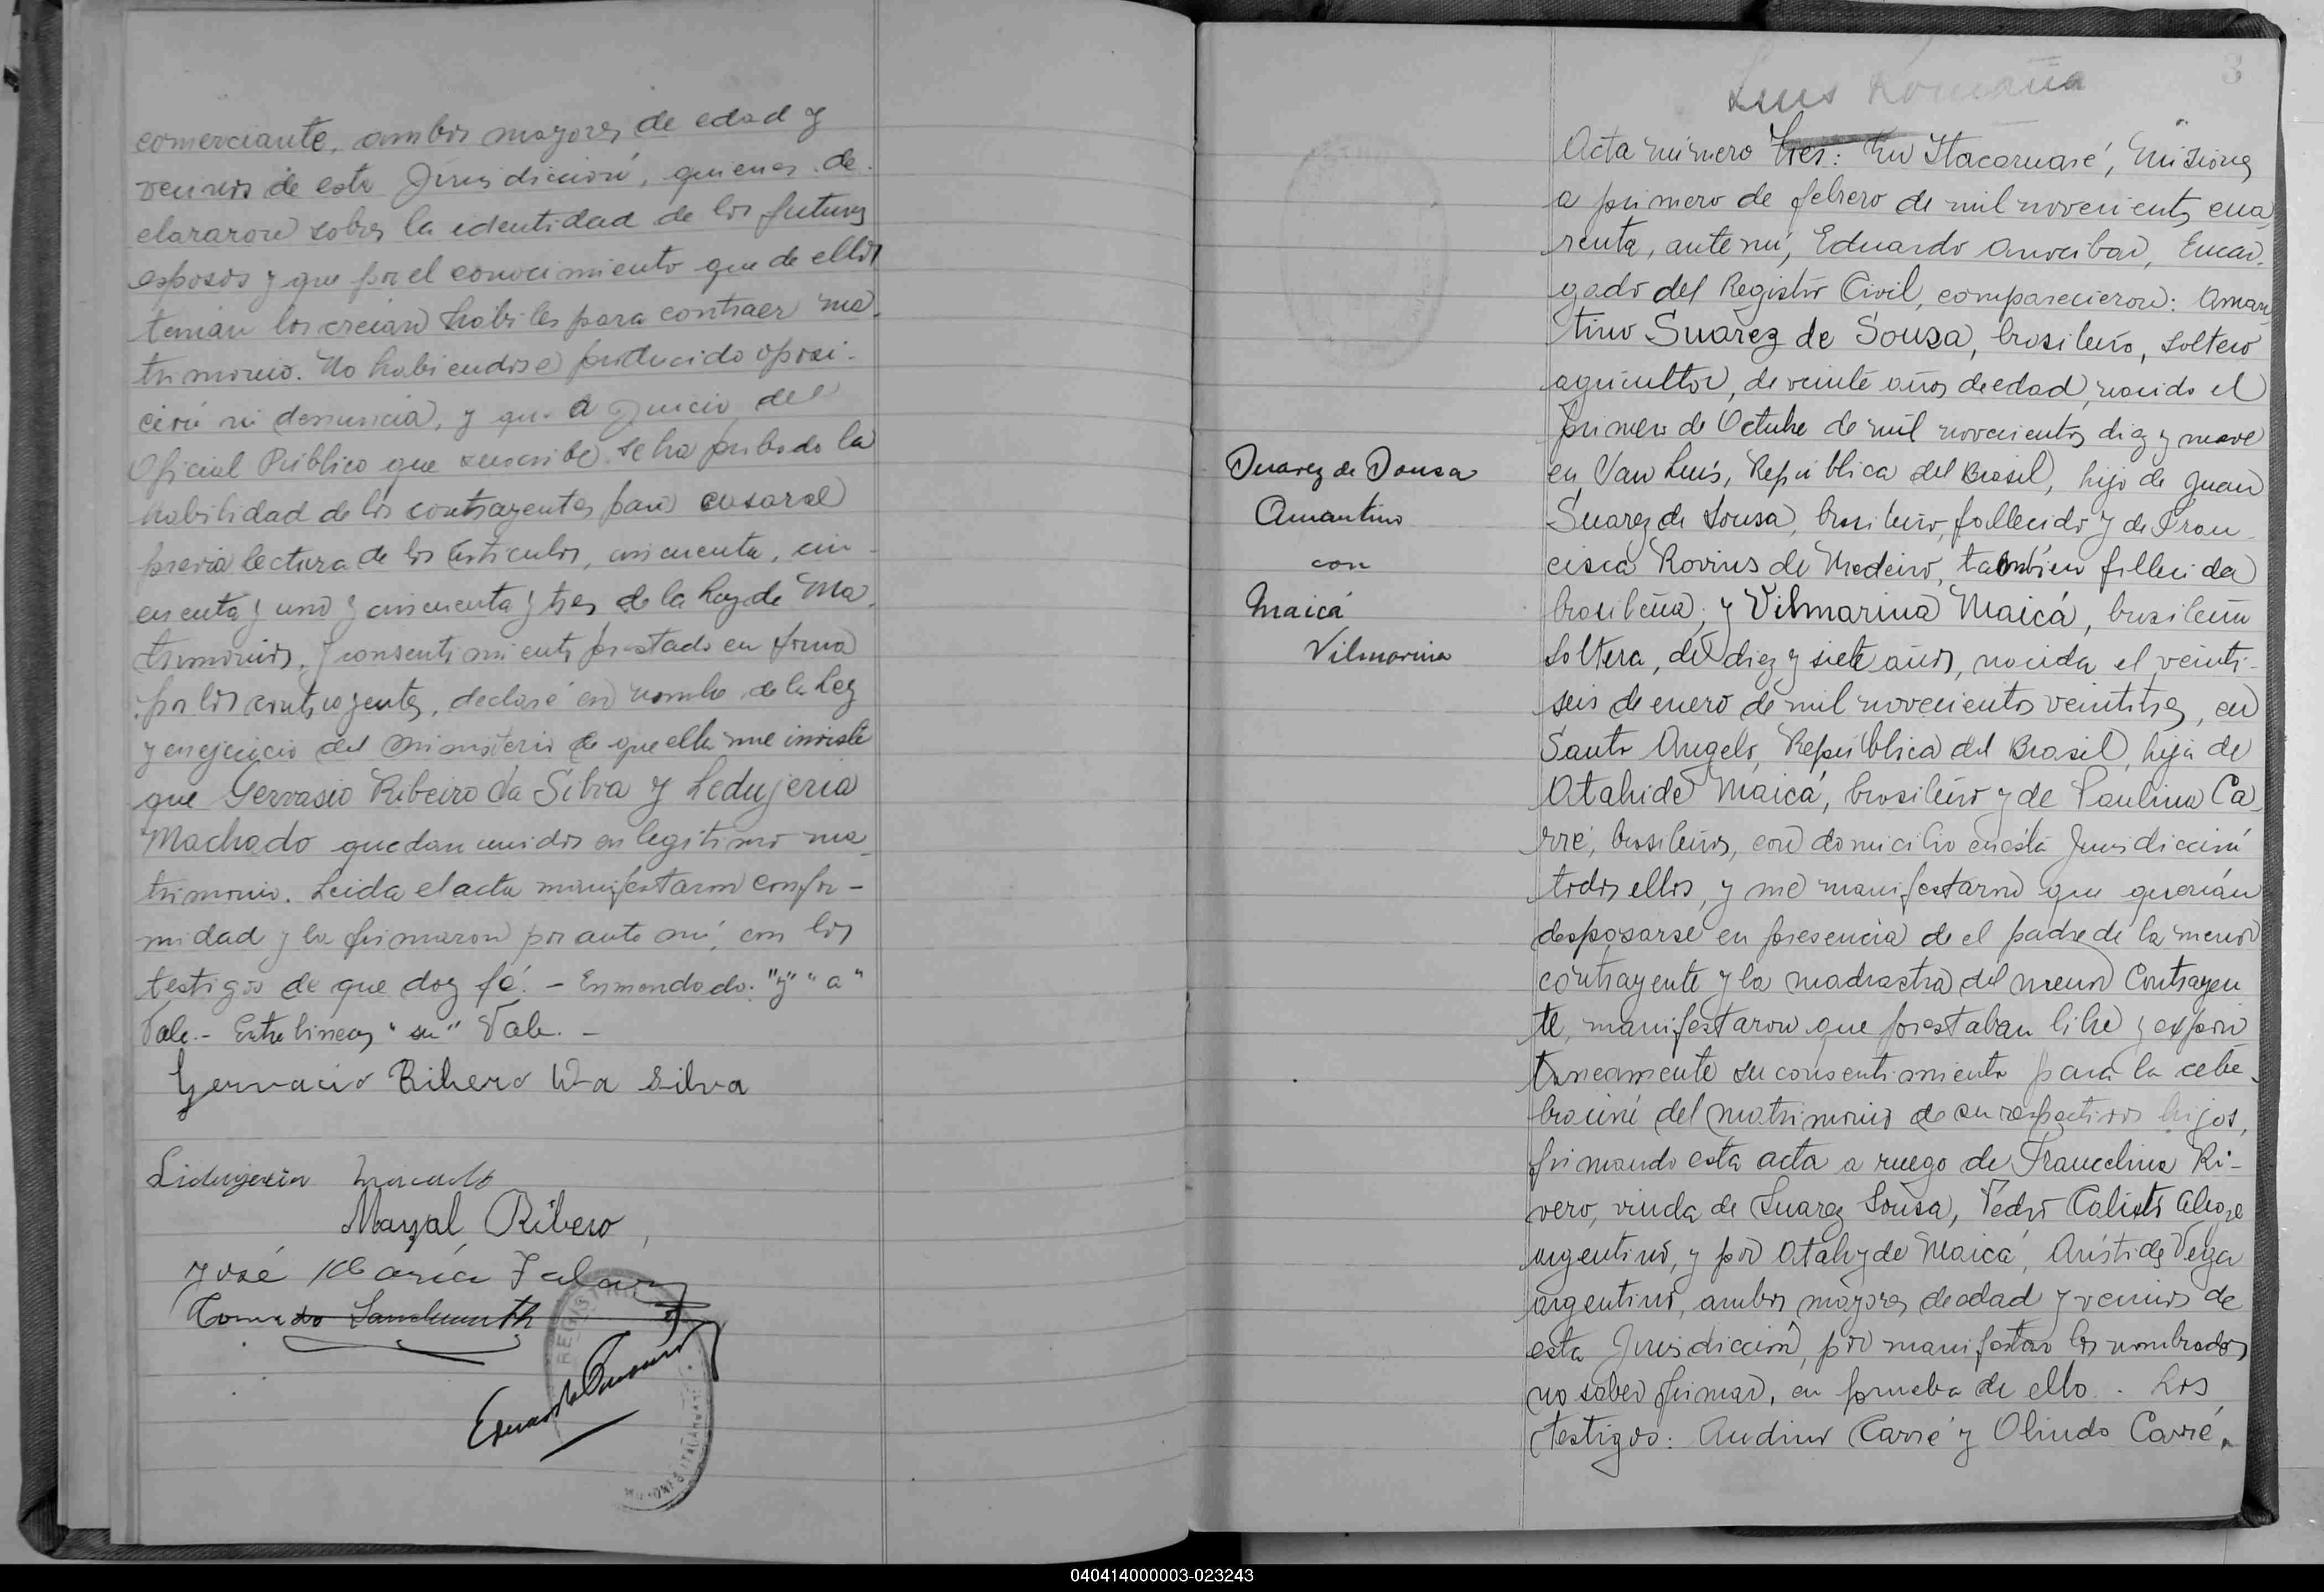 comerciante, ambos mayores de edad y
vecinos de esta Jurisdicción, quienes de-
clararon sobre la identidad de los futuros
esposos y que por el conocimiento que de ellos
tenían los creían hábiles para contraer ma-
trimonio. No habiendose producido oposi-
ción ni denuncia, y que a juicio del
Oficial Público que suscribe se ha probado la
habilidad de los contrayentes para casarse
previa lectura de los artículos, cincuenta, cin-
cuenta y uno y cincuenta y tres de la Ley de Ma-
trimonios, y consentimiento prestado en forma
por los contrayentes, declaré en nombre de la Ley
y en ejercicio del ministerio de que ella me inviste
que Gervasio Ribeiro da Silva y Ledujeria
Machado quedan unidos en legitimo ma-
trimonio. Leida el acta manifestaron confor-
midad y la firmaron por ante mí, con los
testigos de que doy fé. - Enmendado: "y" "a"
Vale. - Entre lineas "su" Vale. -
Gervacio Ribero Da Silva
Mayal Ribero
José María
REGISTRO
Luis Romaña
3
Acta número tres: En Itacaruaré, Misiones
a primero de febrero de mil novecientos cua
renta, ante mí, Eduardo Anocibar, Encar-
gado del Registro Civil, comparecieron: Aman
tino Suarez de Sousa, brasileño, soltero
agricultor, de veinte años de edad, nacido el
primero de Octubre de mil novecientos diez y nueve
en San Luis, República del Brasil, hijo de Juan
Suarez de Sousa, brasileño, fallecido y de Fran-
cisca Rovius de Medeiro, también fallecida
brasileña; y Vilmarina Maicá, brasileña
soltera, de diez y siete años, nacida el veinti-
seis de enero de mil novecientos veintitres, en
Santo Angelo, República del Brasil, hija de
Atahide Maicá, brasileño y de Paulina Ca-
rré, brasileños, con domicilio en ésta Jurisdicción
todos ellos, y me manifestaron que querían
desposarse en presencia de el padre de la menor
contrayente y la madrastra del menor Contrayen
te, manifestaron que prestaban libre y espon
taneamente su consentimiento para la cele-
bración del matrimonio de su respectivos hijos,
firmando esta acta a ruego de Francelina Ri-
vero, viuda de Suarez Sousa, Pedro Calisto
argentino, y por Atahyde Maicá, Arístides Vega
argentino, ambos mayores de edad y vecinos de
esta Jurisdicción, por manifestar los nombrados
no saber firmar, en prueba de ello. Los
testigos: Audino Carré y Olindo Carré,
Suarez de Sousa
Amantino
con
Maicá
Vilmarina
040414000003-023243